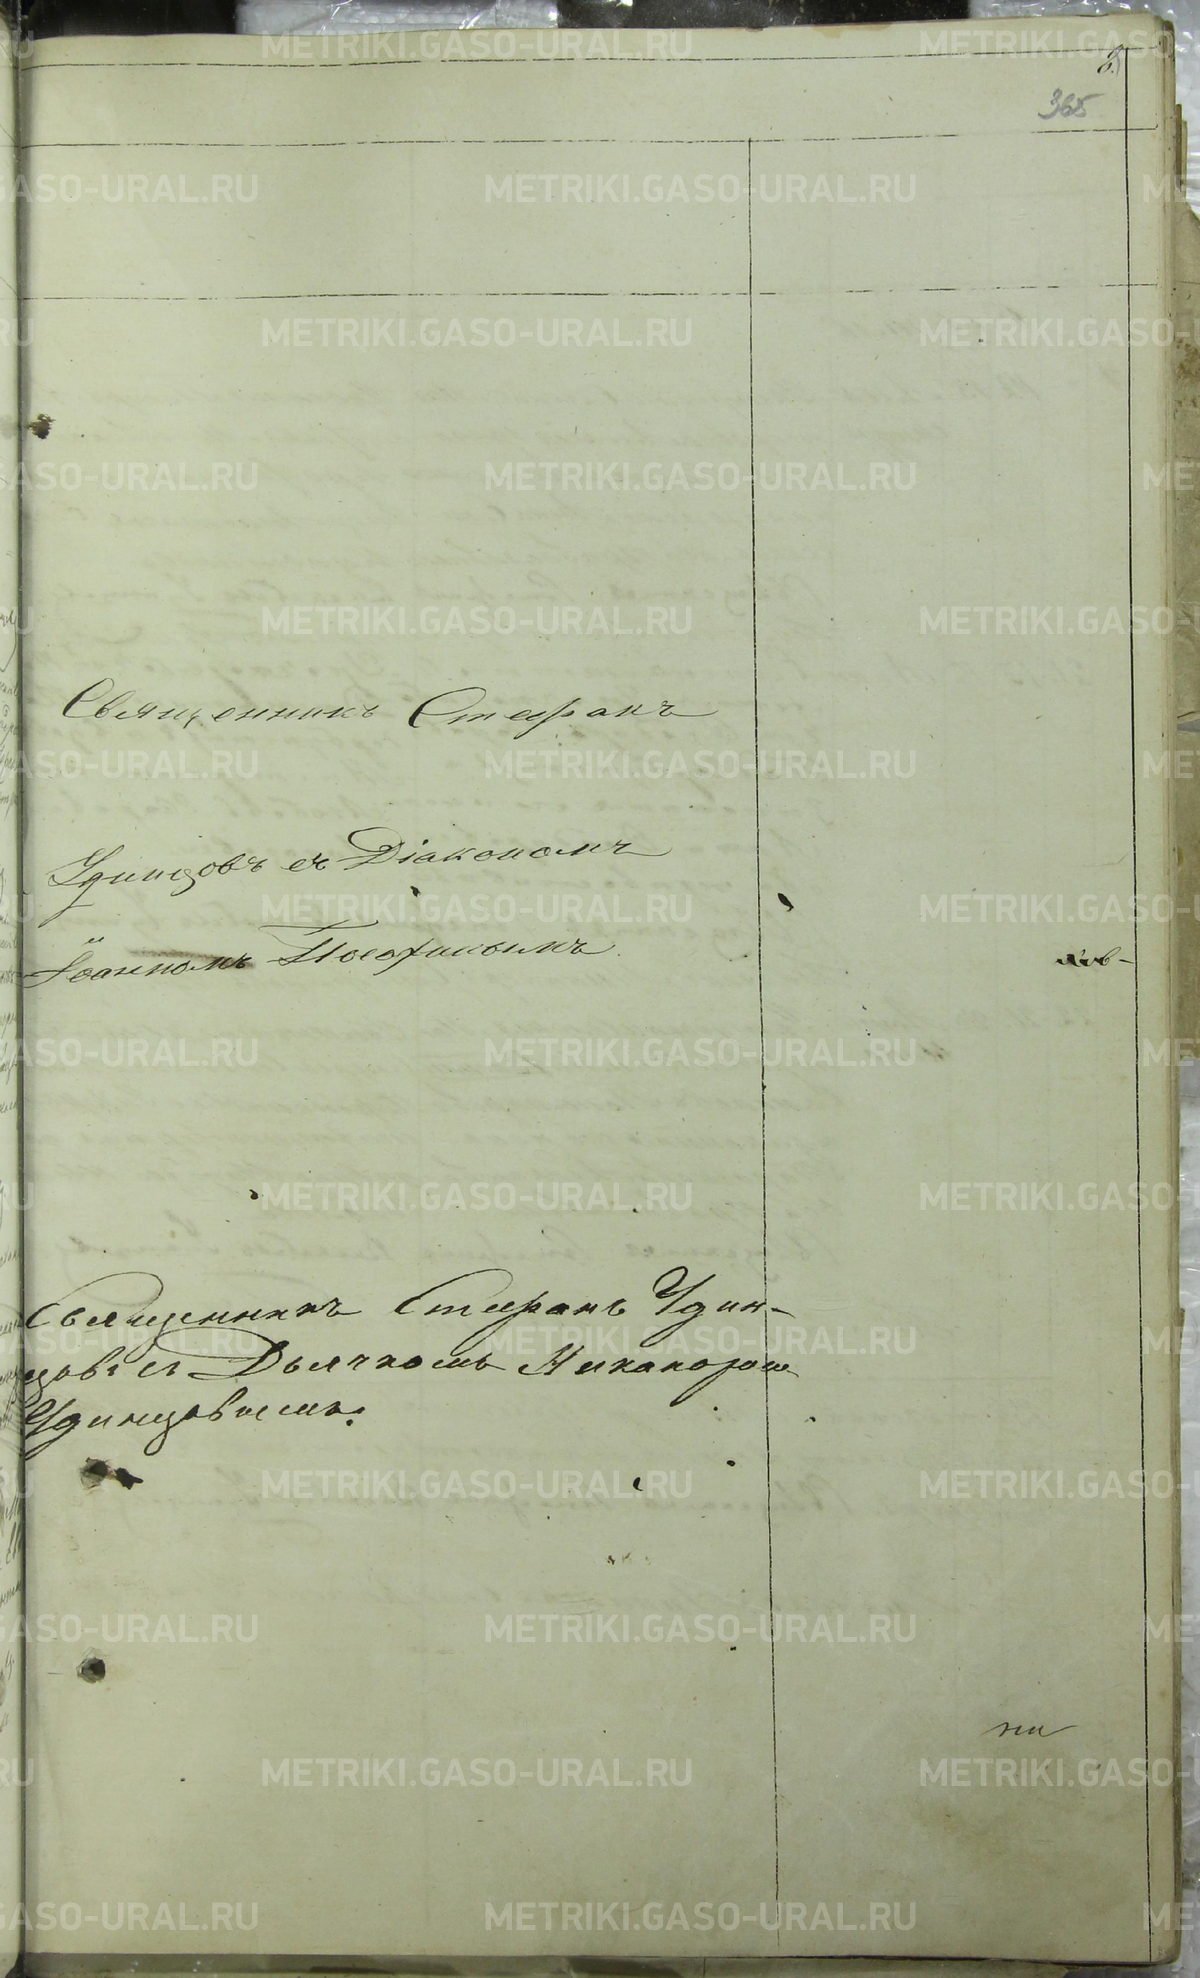 8.
365
Священникъ Стефанъ
Удинцовъ съ Діакономъ
Іоанномъ
Священникъ Стефанъ Удин-
цовъ съ Дьячкомъ Никаноромъ
Удинцовымъ.
METRIKI.GASO-URAL.RU